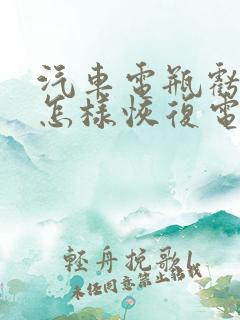 汽车電瓶虧
怎樣恢復電
輕舟挽歌
未任同意禁止转载